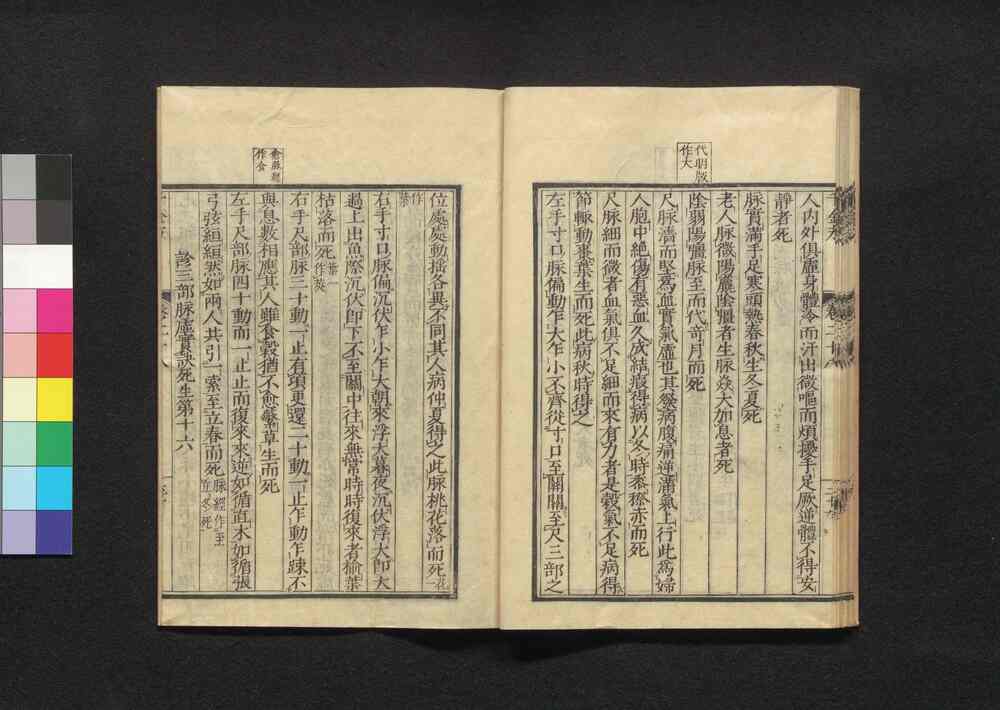 代明版
作大
人内外俱虛身體冷而汗出微嘔而煩擾手足厥逆體不得安
靜者死
脉實滿手足寒頭熱春秋生冬夏死
老人脉微陽羸陰彊者生脉焱大加息者死
陰弱陽彊脉至而代奇月而死
尺脉濇而堅爲血實氣虛也其發病腹痛逆滿氣上行此爲婦
人胞中絶傷有惡血久成結瘕得病以冬時黍穄赤而死
尺脉細而微者血氣俱不足細而來有力者是穀氣不足病得
節輙動棗葉生而死此病秋時得之
左手寸口脉偏動乍大乍小不齊從寸口至關關至尺三部之
位處處動揺各異不同其人病仲夏得之此脉桃花落而死花
作
葉
右手寸口脉偏沉伏乍小乍大朝來浮大暮夜沉伏浮大卽大
過上出魚際沉伏卽下不至關中往來無常時時復來者榆葉
枯落而死葉一
作莢
右手尺部脉三十動一止有頃更還二十動一止乍動乍踈不
與息數相應其人雖食穀猶不愈蘩草生而死
左手尺部脉四十動而一止止而復來來逆如循直木如循張
弓弦絙絙然如兩人共引一索至立春而死脉經作至
立冬死
診三部脉虛實決死生第十六